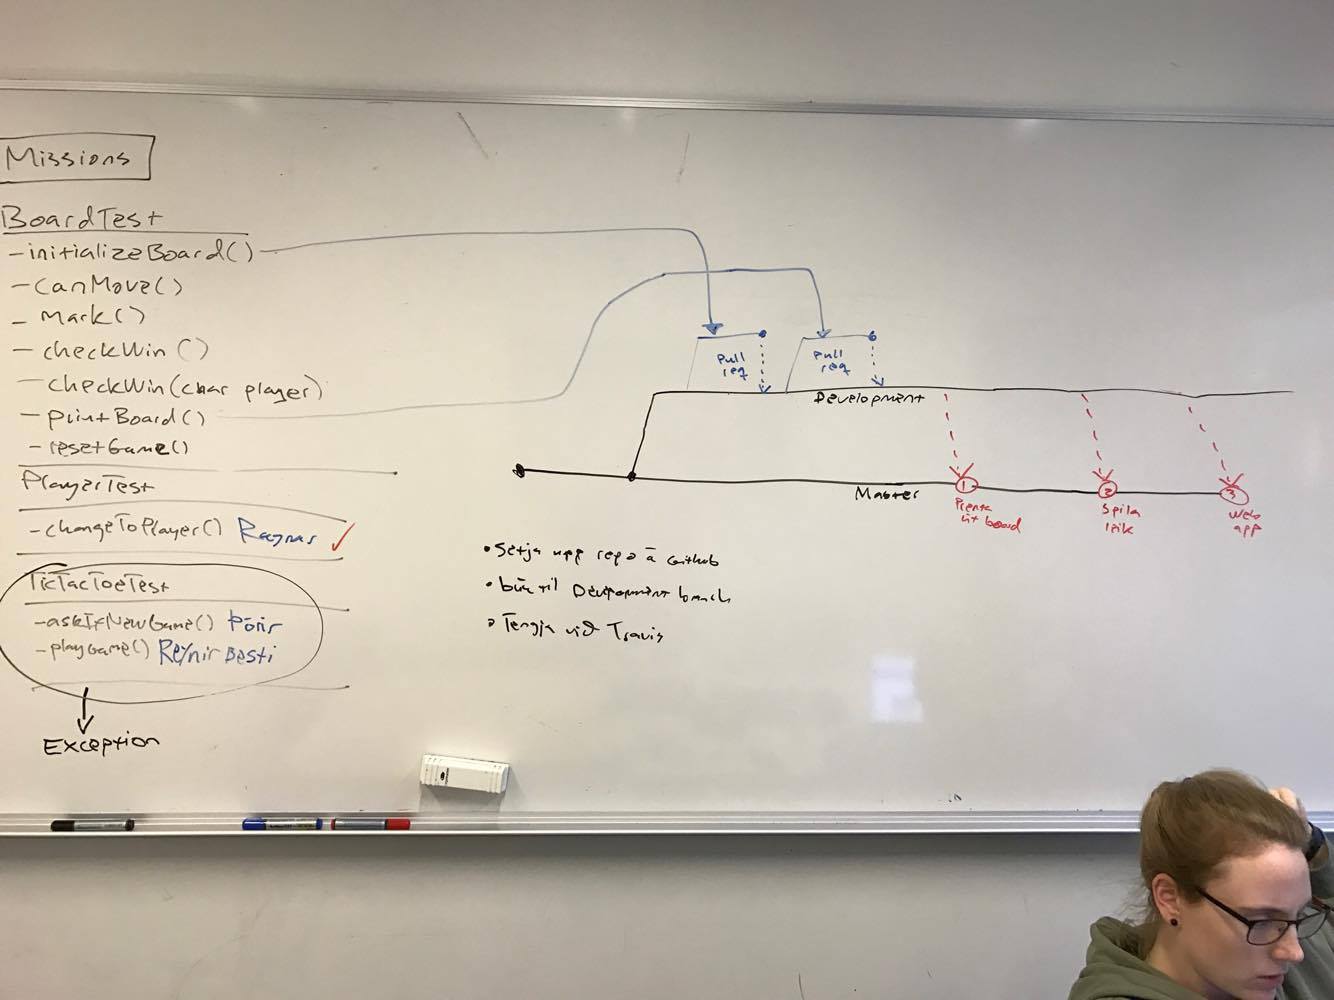 Missions
BoardTest
- initializeBoard()
- canMove()
- Mark()
- checkWin()
- checkWin(char player)
- printBoard()
- resetGame()
PlayerTest
- changeToPlayer() Ragnar
TicTacToeTest
- askIfNewGame() Þórir
- playGame() Reynir Besti
Exception
Pull
req
Pull
req
Development
Master
1
2
3
Prenta
út board
Spila
leik
Web
app
• Setja upp repo á Github
• búa til Development branch
• Tengja við Travis